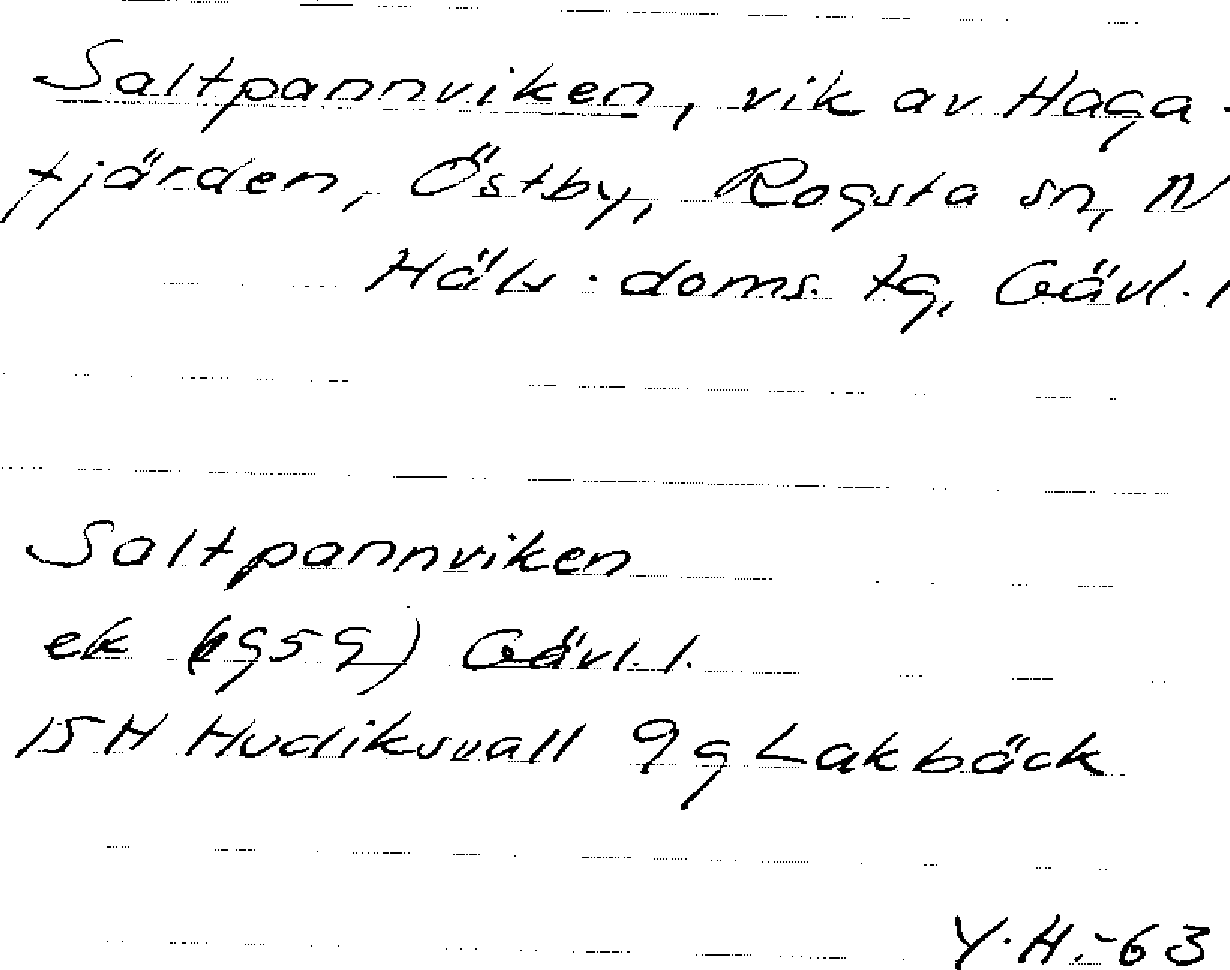 Saltpannviken, vik av Haga-
fjärden, Östby, Rogsta sn, N
Häls. doms. tg, Gävl. l
Saltpannviken
ek (1959) Gävl. l.
15H Hudiksvall 9g Lakbäck
Y.H.-63